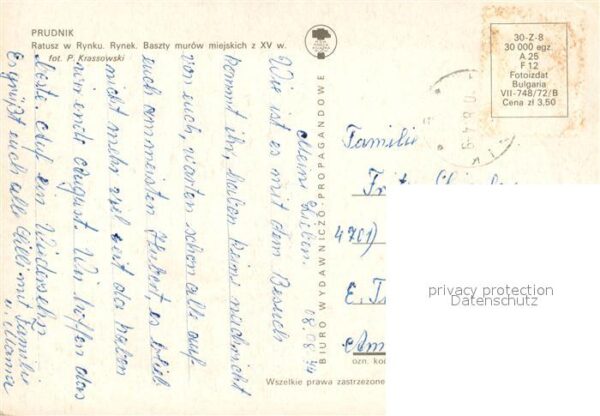 PRUDNIK
Ratusz w Rynku. Rynek. Baszty murów miejskich z XV w.
fot. P. Krassowski
30-Z-8
30 000 egz.
A 25
F 12
Fotoizdat
Bulgaria
VII-748/72/B
Cena zł 3,50
BIURO WYDAWNICZO-PROPAGANDOWE
08.08.74
Meine Lieben.
Wie ist es mit dem Besuch
kommt ihr, haben keine nachricht
von euch, warten schon alle auf
euch am meisten Hubert, es blieb
nicht mehr viel Zeit da haben
wir ende August. Wir hoffen das
Beste. Auf ein Wiedersehn
Es grüßt euch alle Cilli mit Familie
u. Mama
Familie
4701)
E. T
Am
ozn. kod
Wszelkie prawa zastrzeżone
privacy protection
Datenschutz